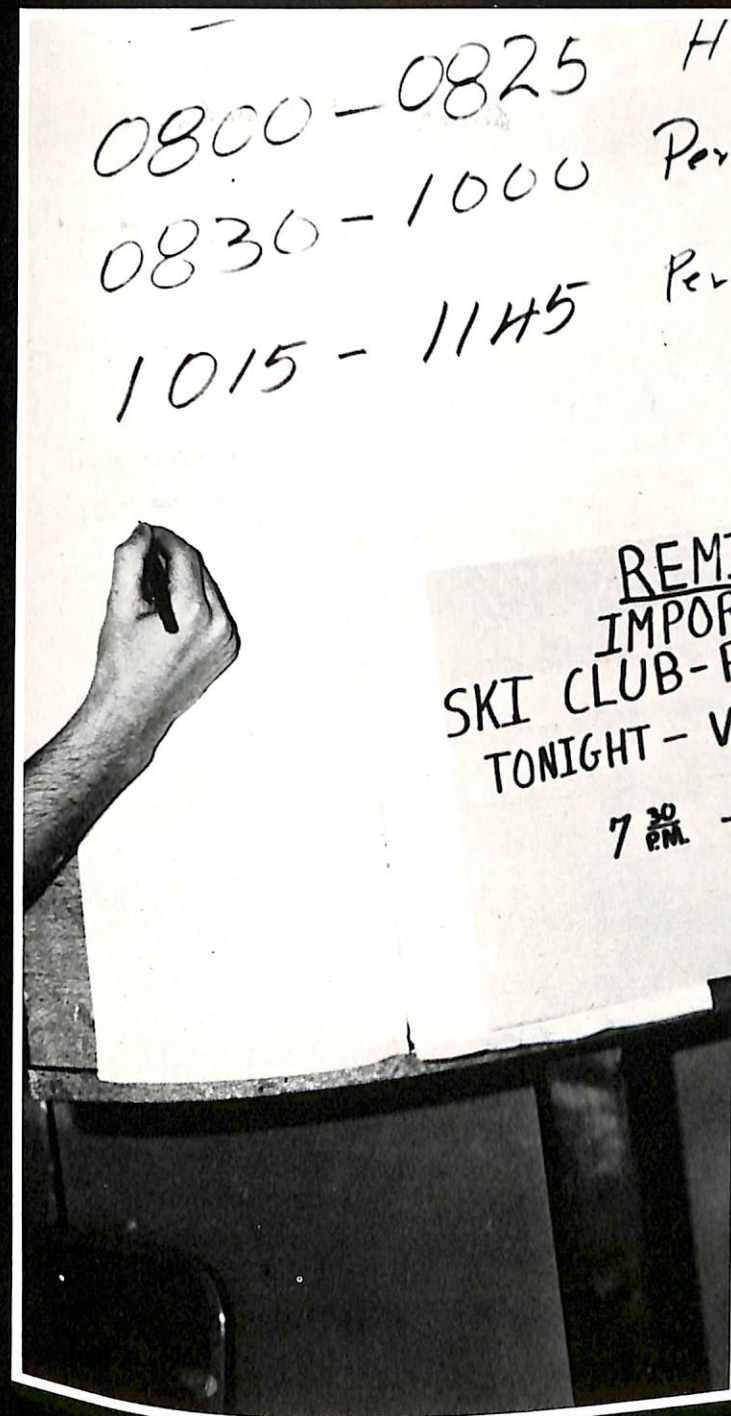 0800-0825 H
0830-1000 Per
1015-1145 Per
REMI
IMPOR
SKI CLUB-
TONIGHT-
7 30 P.M. -